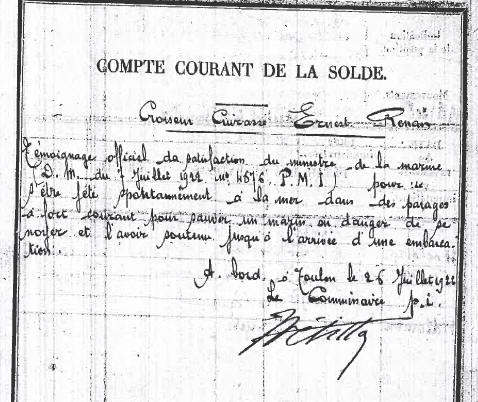 COMPTE COURANT DE LA SOLDE.
Croiseur Cuirassé Ernest Renan
Témoignage officiel da satisfaction du ministre de la marine
(D. M. du 7 Juillet 1922 No 4576 P.M.I) pour se
s'être jeté spontanément à la mer dans des parages
à fort courant pour sauver un marin en danger de se
noyer et l'avoir soutenu jusqu'à l'arrivée d'une embarca
tion.
A bord, à Toulon le 26 Juillet 1922
Le Commissaire p.i.